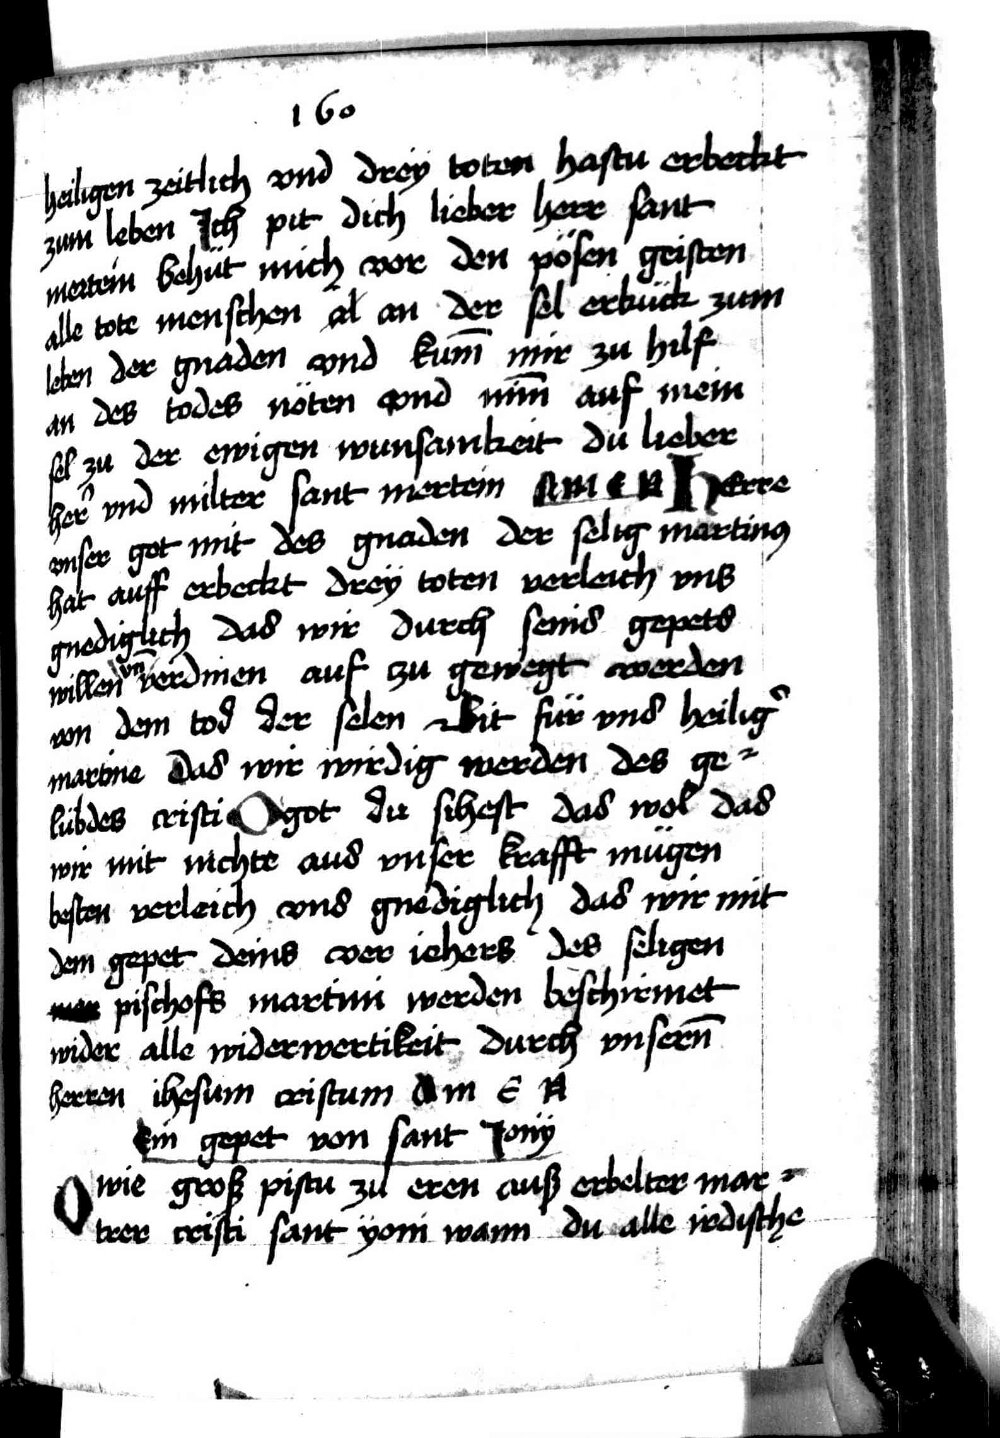 160
heiligen zeitlich vnd dreÿ toten hastu erbeckt
zum leben Ich pit dich lieber herr sant
mertein behüt mich vor den pösen geisten
alle tote menschen al an der sel erkück zum
leben der gnaden vnd kum̄ mir zu hilf
an des todes nöten vnd nim̄ auf mein
sel zu der ewigen wunsamkeit du lieber
her᷑ vnd milter sant mertein AMEN HErre
vnser got mit des gnaden der selig martinꝰ
hat auff erbeckt dreÿ toten verleich vns
gnediglich das wir durch seins gepets
willen vn̄ verdinen auf zu gewegt werden
von dem tod der selen Bit für vns heilig᷑
martine Das wir wirdig werden des ge⸗
lübdes cristi O got du sihest das wol das
wir mit nichte aus vnser krafft mügen
besten verleich vns gnediglich das wir mit
dem gepet deins ver iehers des seligen
pischofs martini werden beschirmet
wider alle widerwertikeit durch vnsern̄
herren ihesum cristum AmEN
Ein gepet von sant Jonÿ
O wie groß pistu zu eren auß erbelter mar⸗
trer cristi sant ÿoni wann du alle irdische